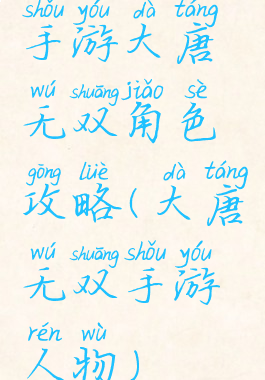 shǒu yóu dà táng
手游大唐
wú shuāng jiǎo sè
无双角色
gōng lüè dà táng
攻略(大唐
wú shuāng shǒu yóu
无双手游
rén wù
人物)